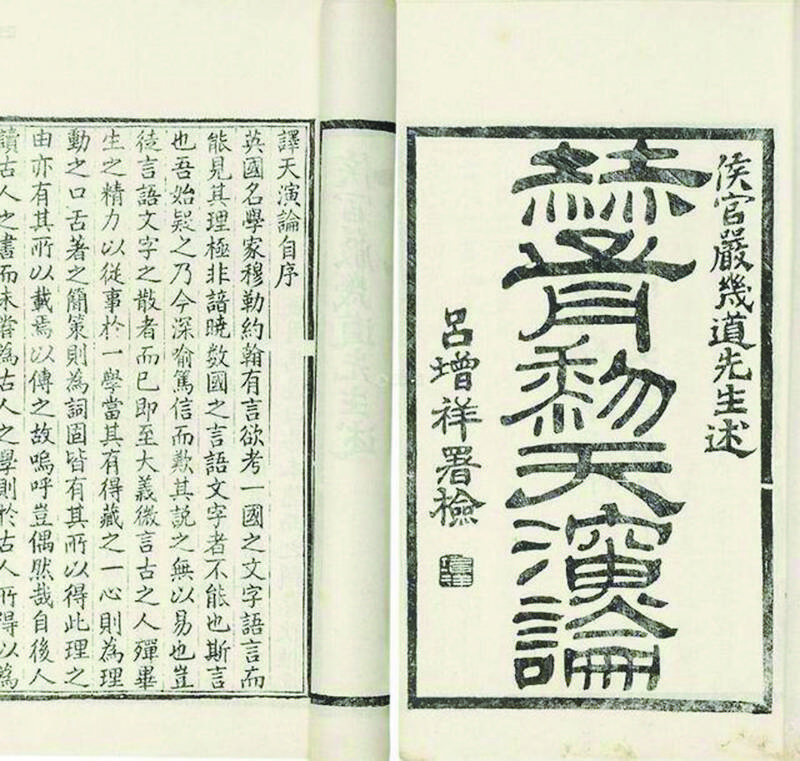 侯官嚴幾道先生述
赫胥黎天演論
呂增祥署檢
譯天演論自序
英國名學家穆勒約翰有言欲考一國之文字語言而
能見其理極非諳曉数國之言語文字者不能也斯言
也吾始疑之乃今深喻篤信而歎其説之無以易也豈
徒言語文字之散者而已即至大義微言古之人殫畢
生之精力以從事於一學當其有得藏之一心則為理
動之口舌著之簡策則為詞固皆有其所以得此理之
由亦有其所以載焉以傳之故嗚呼豈偶然哉自後人
讀古人之書而未嘗為古人之學則於古人所得以為